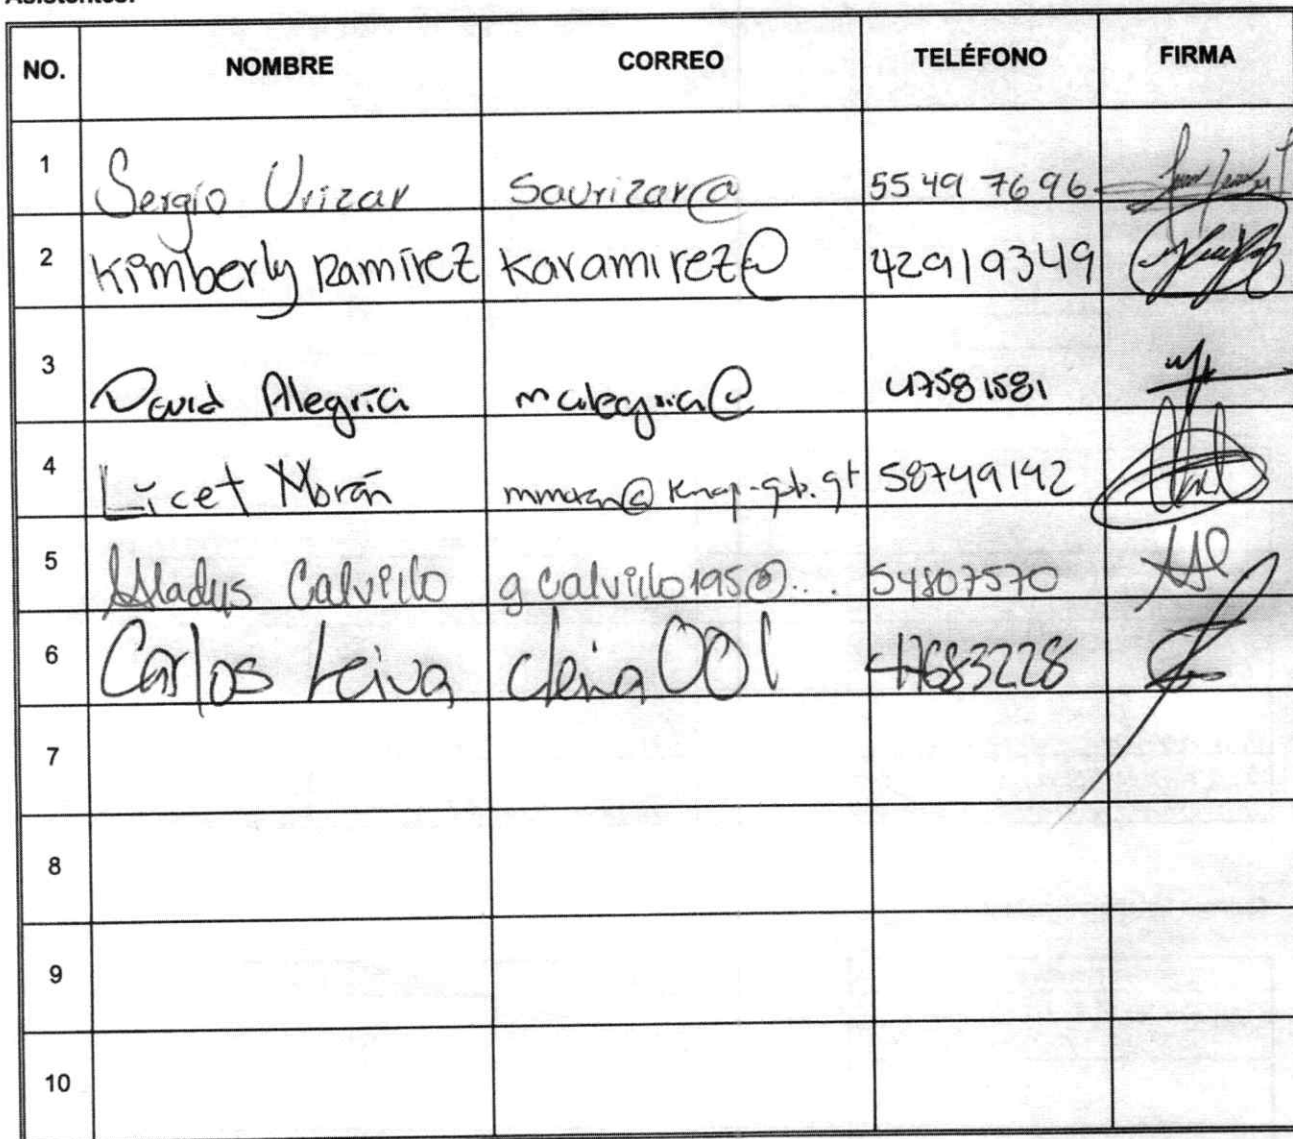 Asistentes:
NO. NOMBRE CORREO TELÉFONO FIRMA
1 Sergio Urizar Saurizar@ 5549 7696
2 Kimberly Ramírez Karamirez@ 42919349
3 David Alegría malegria@ 47581581
4 Licet Morán mmoran@ 58749142
5 Gladys Calvillo gcalvillo195@... 54807570
6 Carlos Leiva cleiva001 47683228
7
8
9
10